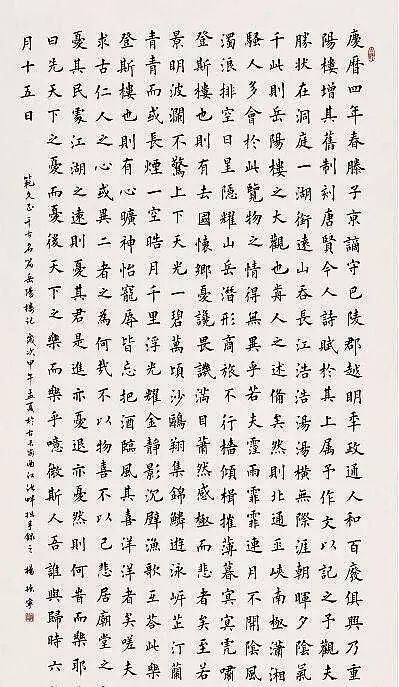 慶曆四年春滕子京謫守巴陵郡越明年政通人和百廢俱興乃重
陽樓增其舊制刻唐賢今人詩賦於其上屬予作文以記之予觀夫
勝狀在洞庭一湖銜遠山吞長江浩浩湯湯橫無際涯朝暉夕陰氣
千此則岳陽樓之大觀也歬人之述備矣然則北通巫峽南極瀟湘
騷人多會於此覽物之情得無異乎若夫霪雨霏霏連月不開陰風
濁浪排空日星隱耀山岳潛形商旅不行檣傾楫摧薄暮冥冥虎嘯
登斯樓也則有去國懷鄉憂讒畏譏滿目蕭然感極而悲者矣至若
景明波瀾不驚上下天光一碧萬頃沙鷗翔集錦鱗遊泳岸芷汀蘭
青青而或長煙一空皓月千里浮光耀金靜影沉璧漁歌互答此樂
登斯樓也則有心曠神怡寵辱皆忘把酒臨風其喜洋洋者矣嗟夫
求古仁人之心或異二者之為何哉不以物喜不以己悲居廟堂之
憂其民處江湖之遠則憂其君是進亦憂退亦憂然則何時而樂耶
曰先天下之憂而憂後天下之樂而樂乎噫微斯人吾誰與歸時六
月十五日
範文正千古名篇岳陽樓記歲次甲午孟夏於古